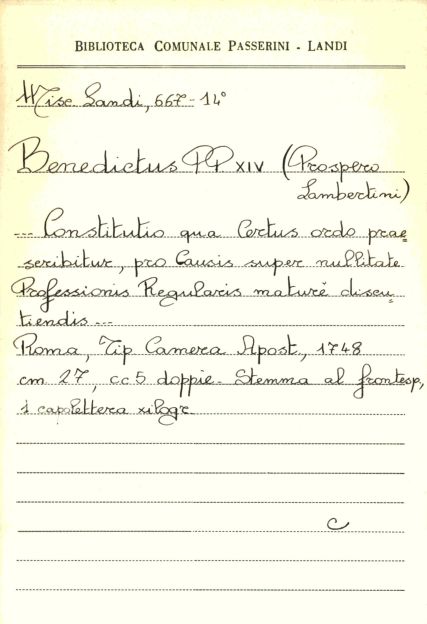 BIBLIOTECA COMUNALE PASSERINI - LANDI
Misc. Landi, 667 - 14°
Benedictus PP XIV (Prospero
Lambertini)
... Constitutio qua Certus ordo prae=
scribitur, pro Causis super nullitate
Professionis Regularis maturè discu=
tiendis ...
Roma, Tip Camera Apost., 1748
cm 27, cc 5 doppie. Stemma al frontesp,
1 capolettera xilogr.
C